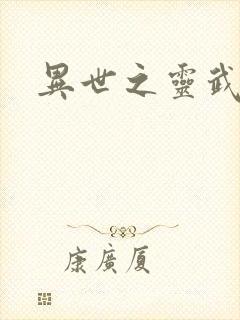 異世之靈武
康廣厦